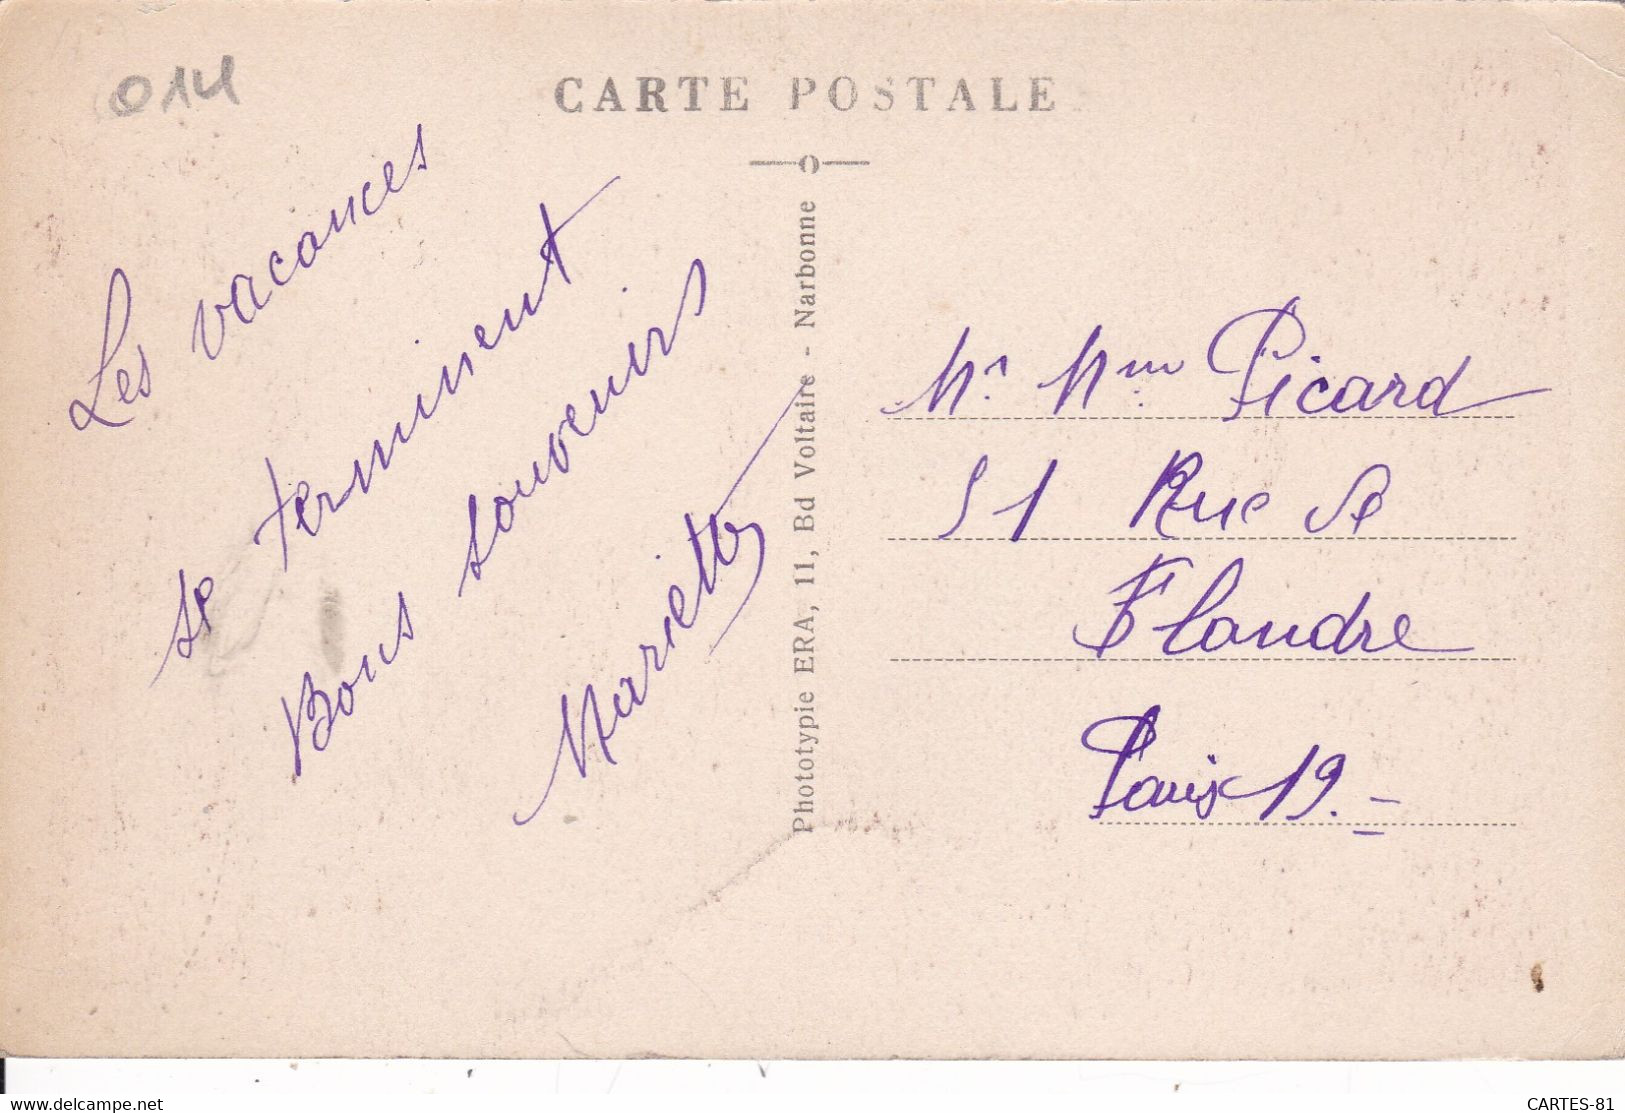 014
CARTE POSTALE
Les vacances
se terminent
Bons souvenirs
Mariette
Phototypie ERA, 11, Bd Voltaire - Narbonne
Mr. Mme. Picard
51 Rue de
Flandre
Paris 19.
www.delcampe.net
CARTES-81